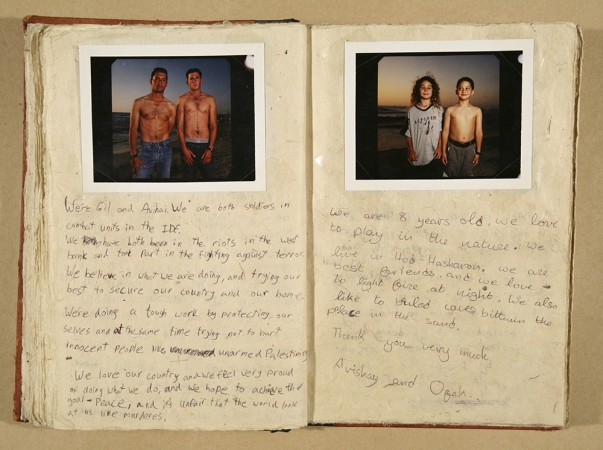 We're Gil and Avihai. We are both soldiers in
combat units in the IDF.
We have both been in the riots in the west
bank and took Part in the fighting against terror.
We believe in what we are doing, and trying our
best to secure our country and our home.
We're doing a tough work by protecting our
selves and at the same time trying not to hurt
innocent people like unarmed Palestinians
We love our country and we feel very proud
of doing what we do, and we hope to achieve the
goal - Peace, and its unfair that the world look
at us like murderes.
We are 8 years old. we love
to play in the nature. We
live in Hod Hasharon. we are
best friends. and we love
to light fire at night. We also
like to build caves bittwin the
pplace in the sand.
Thank you very much
Avishay and